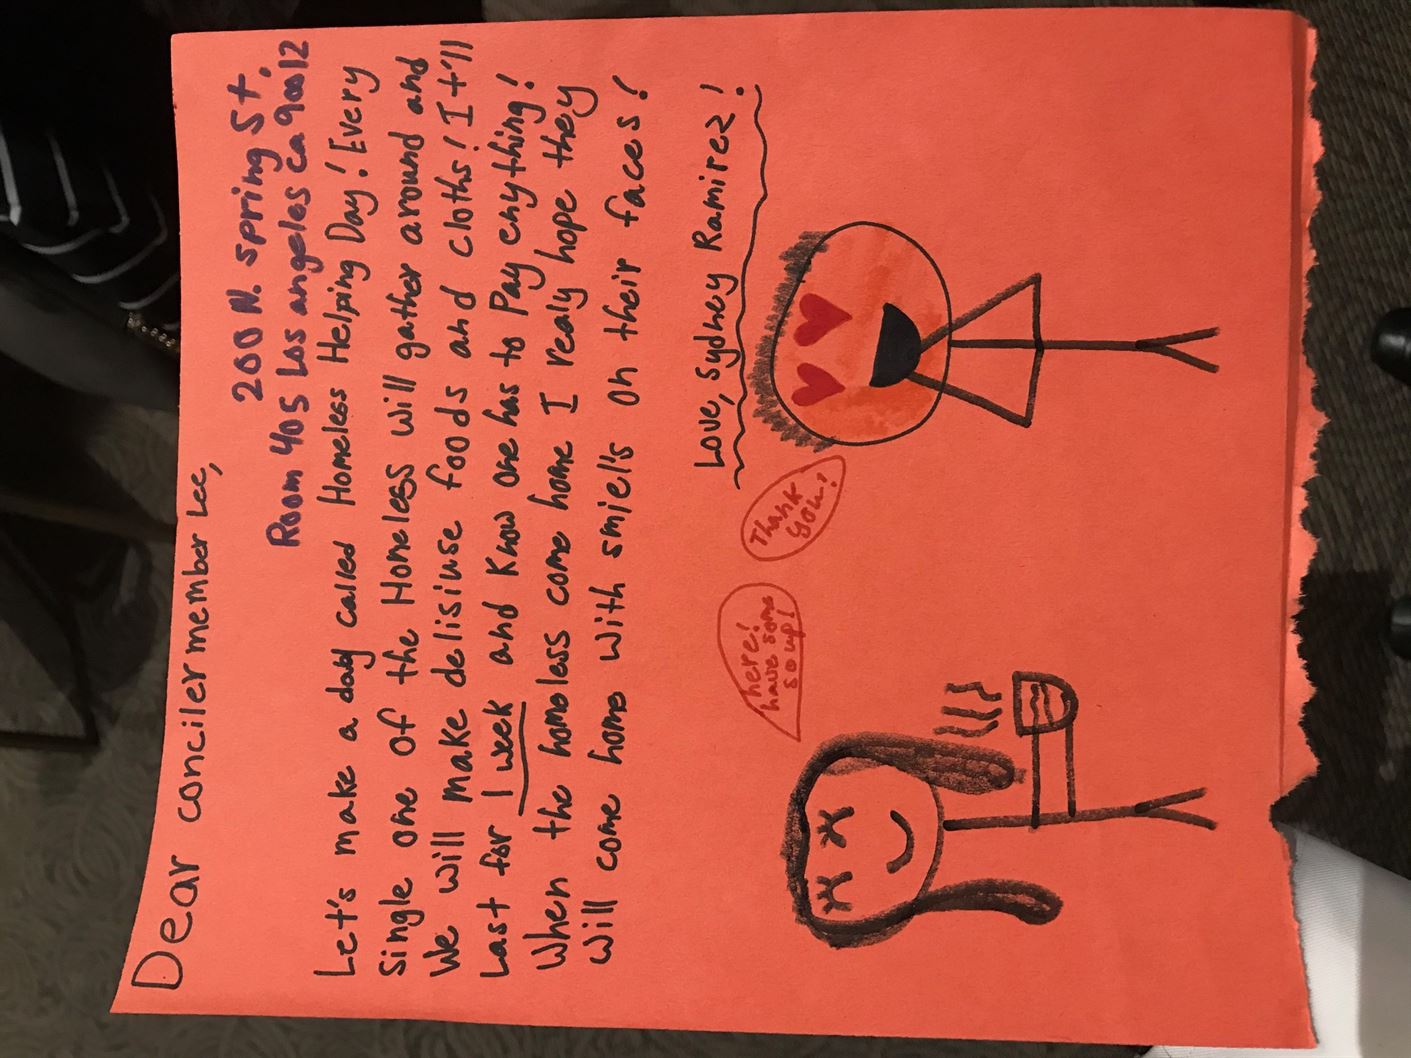 Dear concilermember Lee,
200 N. spring St.
Room 405 Los angeles ca 90012
Let's make a day called Homeless Helping Day! Every
Single one of the Homeless will gather around and
We will make delisiuse foods and cloths! It'll
Last for 1 week and Know one has to Pay enything!
When the homeless come home I realy hope they
Will come home With smiel's on their faces!
Love, Sydney Ramirez!
here!
have some
soup!
Thank
you!